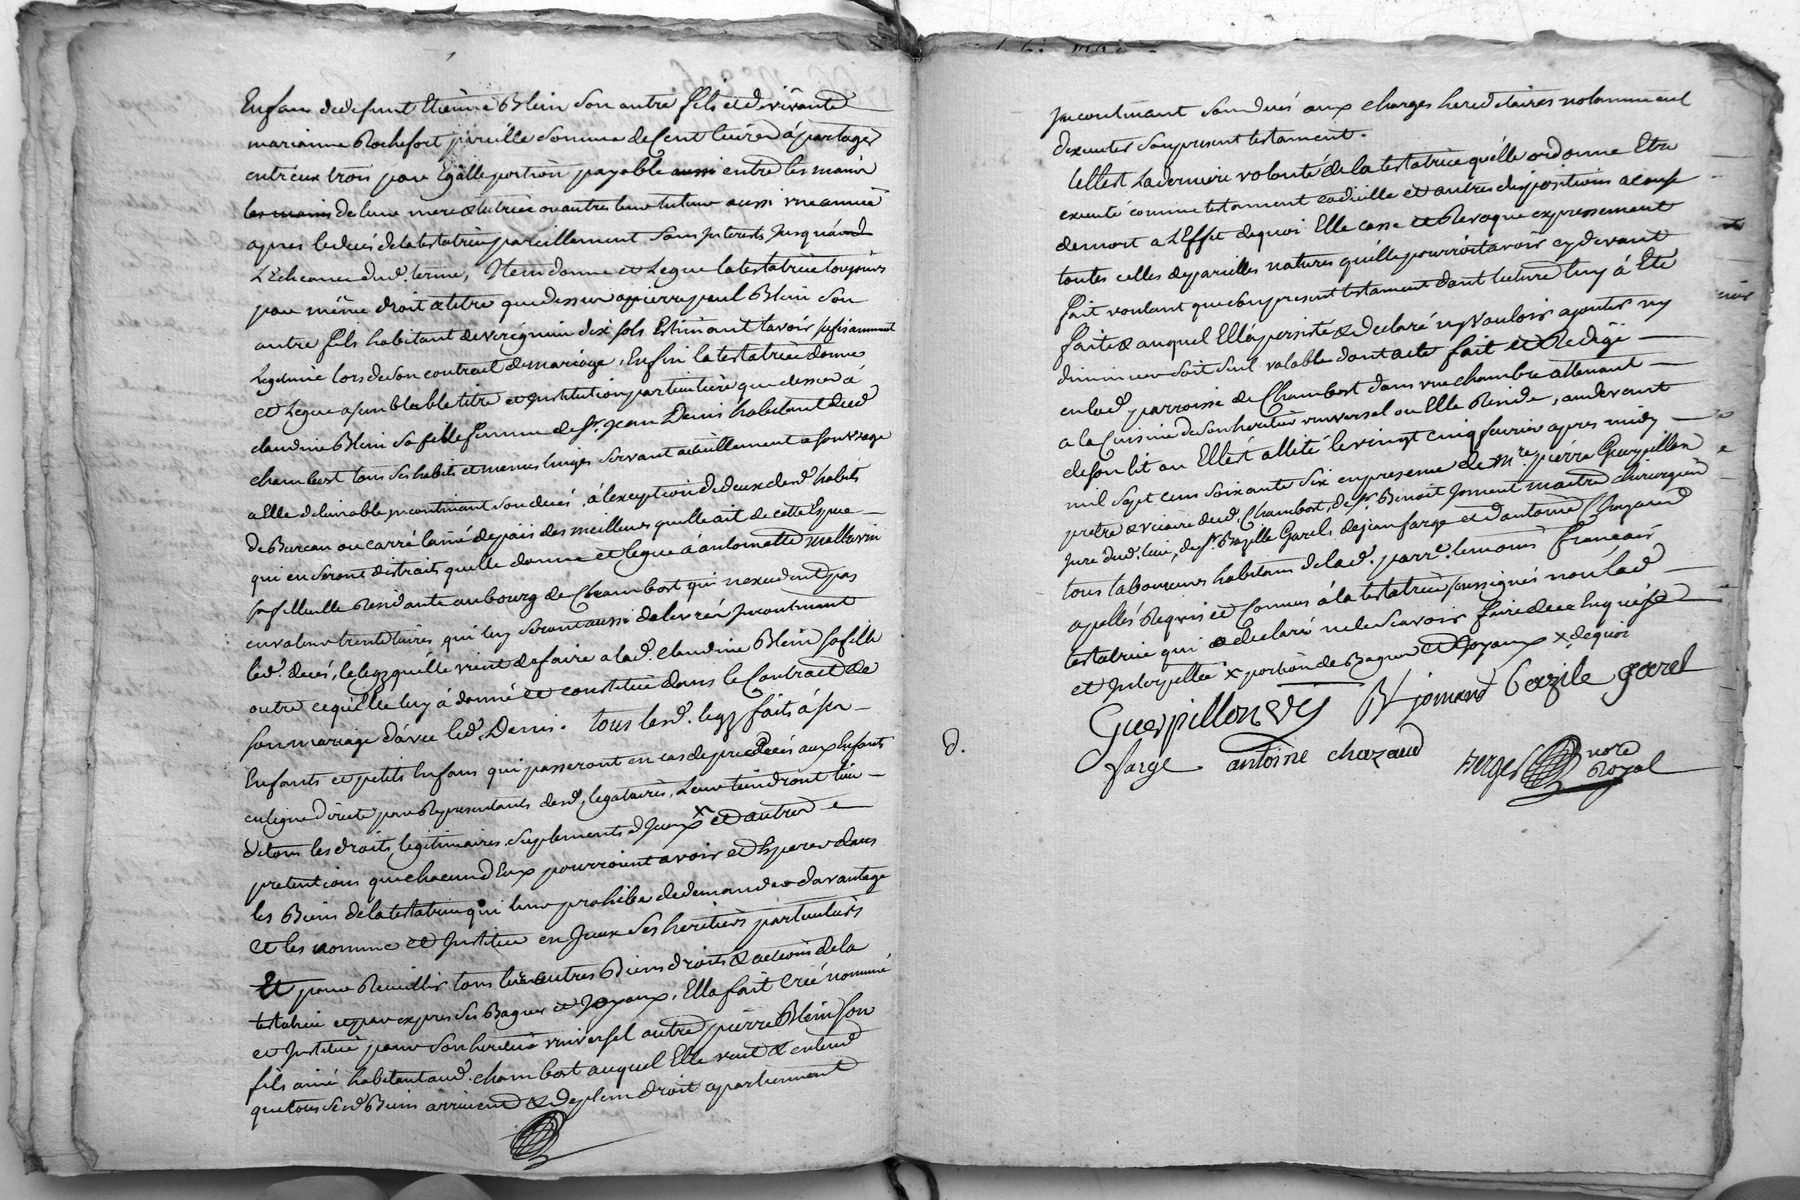 Enfans dedefunt Etienne Blein son autre fils et devivante
marianne Rochefort pareille somme de Cent livres à partager
entr'eux trois par Egalle portion payable aussi entre les mains
les mains de leur mere &tutrice ou autres leur tuteur aussi une année
apres le decés de la testatrice pareillement sans Interests jusquá
L'Echeance dud. terme, Item donne et Legue la testatrice toujours
par même droit &titre que dessus a pierre paul Blein son
autre fils habitant de virignieu dix sols Estimant lavoir sufisamment
Legitimé lors de son contrait de mariage, Enfin la testatrice donne
et Legue a semblable titre et Institution particuliere que dessus à
claudine Blein sa fille femme de Sr. jean Denis habitant dud
chambost tous ses habits et menus linges servant actuellement a son usage
a Elle delivrable incontinant son decés, á l'exception de deux desd. habits
de Bureau ou carré lainé de païs des meilleurs quelle ait de cette Espece
qui en seront distraits quelle donne et legue á antoinette mallavin
sa filleulle Residante au bourg de Chambost qui nexcedent pas
en valeur trente livres qui luy seront aussi delivrés Incontinant
led. decés, le legz qu'elle vient de faire a lad. claudine Blein sa fille
outre ce qu'elle luy à donné et constitué dans le Contract de
son mariage d'avec led. Denis. tous lesd. legz faits á ses
Enfants et petits Enfans qui passeront en cas de predecés aux Enfants
en ligne directe par Representants desd. legataires, Leur tiendront lieu
de tous les droits legitimaires suplements d'Iceux X et autres
pretentions que chacun d'Eux pourroient avoir et Esperer dans
les Biens de la testatrice qui leur prohibe de demander davantage
et les nomme et Institue en Iceux ses heritiers particuliers
Et pour Recueillir tous les autres Biens droits & actions de la
testatrice et par expres ses Bagues et Joyaux, Ella fait créé nommé
et Institué pour son heritier universel autre pierre Blein son
fils ainé habitant aud. chambost auquel Elle veut & entend
que tous sesd Biens arrivent & de plein droit apartiennent
Incontinant son decés aux charges hereditaires notamment
d'executer son present testament.
telle est La derniere volonté de la testatrice qu'elle ordonne Etre
executé comme testament codicille et autres dispositions a cause
de mort a L'Effet de quoi Elle casse et Revoque expressement
toutes celles de pareilles natures qu'elle pourroit avoir cy devant
fait voulant que son present testament dont lecture luy à Eté
faite & auquel Ella persisté & declaré ny vouloir ajouter ny
diminuer soit seul valable dont acte fait et Redigé
en lad. parroisse de Chambost dans une chambre attenant
a la Cuisine de son heritier universel ou Elle Reside, audevant
de son lit ou Elle est allitée le vingt cinq fevrier apres midy
mil sept cens soixante six en presence de Mre. pierre Guerpillon
prêtre & vicaire dud. Chambost, de Sr. Benoit Jomand maitre chirurgien
Juré dud. lieu, de Sr. Bazille Garel, de jean farge et d'antoine Chazaud
tous laboureurs habitans de lad. parre. temoins francais
apellés Requis et Connus á la testatrice soussignés non lad
testatrice qui a declaré ne le scavoir faire de ce Enquise
et Interpellée X portion de Bagues et Joyaux X dequoi
Guerpillon vic Bt jomand bazile garel
d.
farge antoine chazaud Verger nore
Royal